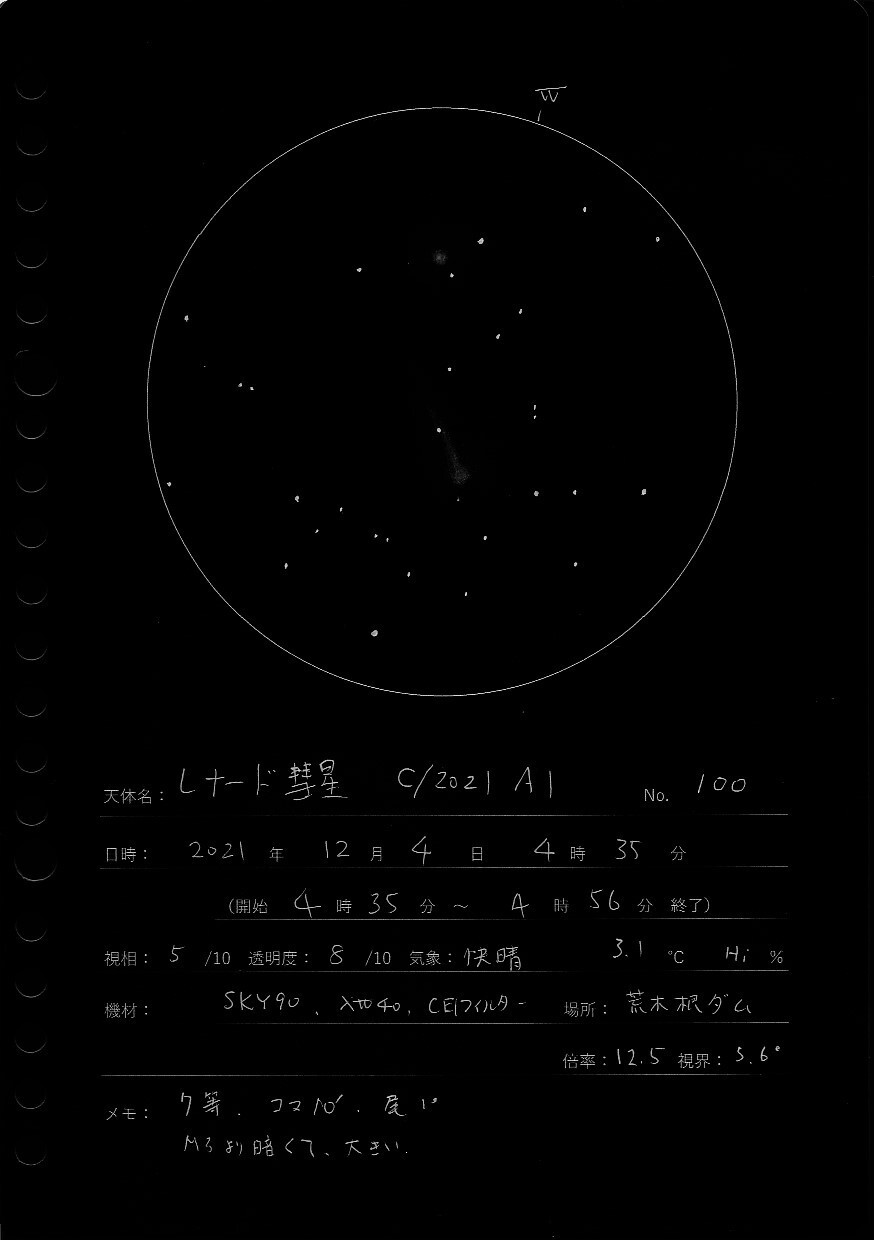 W
天体名： レナード彗星 C/2021 A1 No. 100
日時： 2021 年 12 月 4 日 4 時 35 分
（開始 4 時 35 分 ～ 4 時 56 分 終了）
視相： 5 /10 透明度： 8 /10 気象： 快晴 3.1 ℃ Hi %
機材： SKY90、 40、CEフィルター 場所： 荒木根ダム
倍率：12.5 視界： 5.6°
メモ： 7等. コマ10′. 尾 1°
M3より暗くて、大きい.